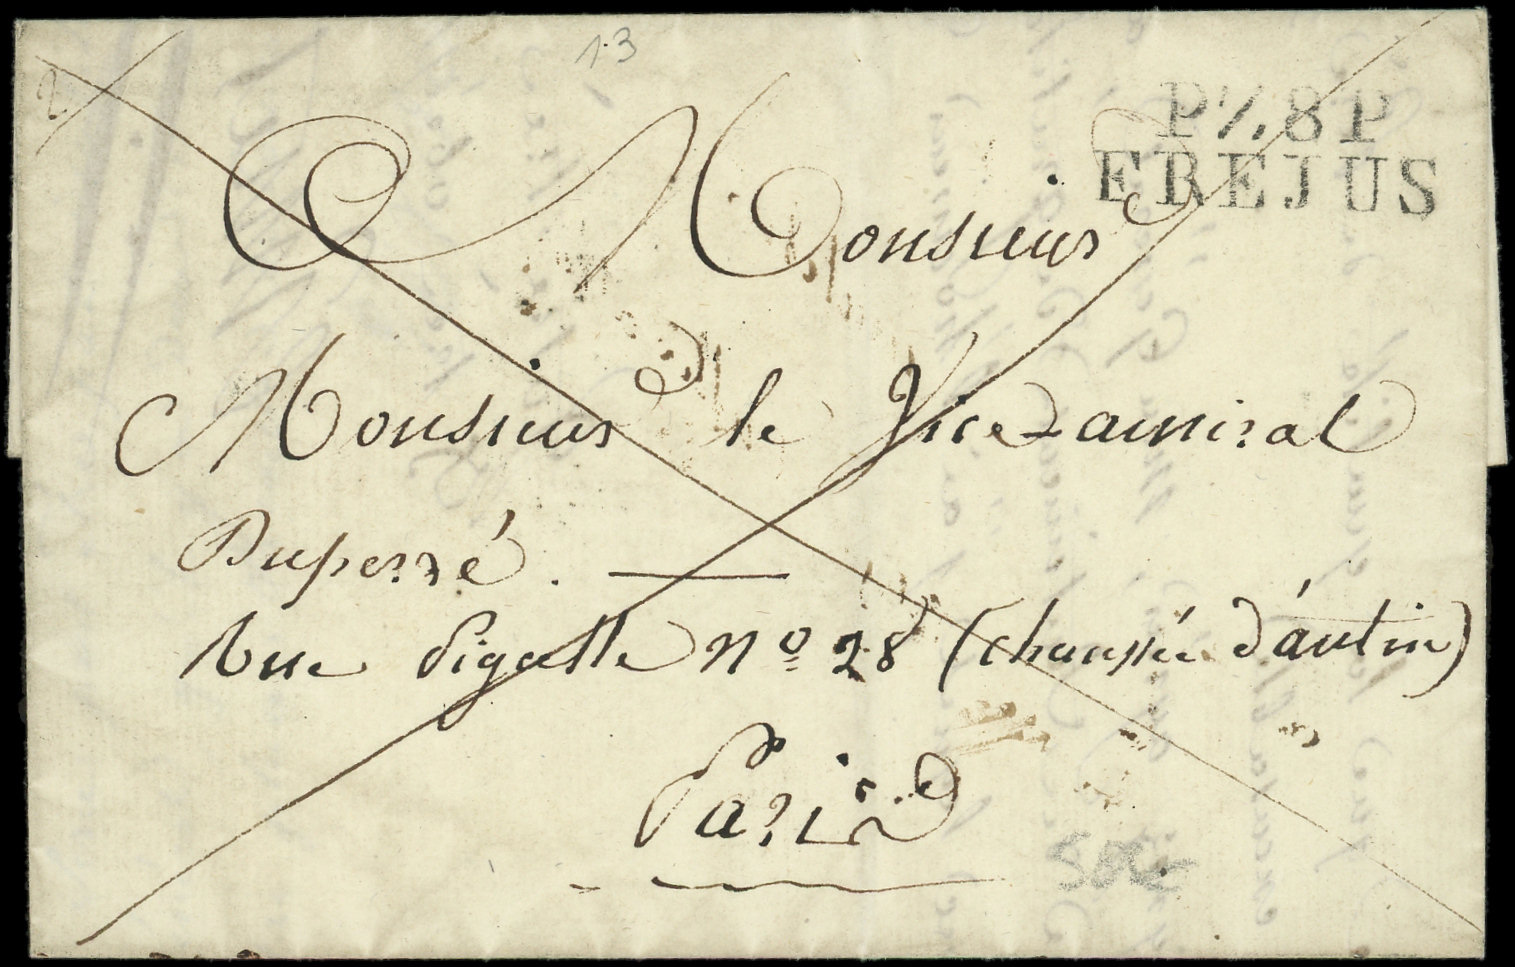 1.3
2
P.83.P
FREJUS
Monsieur
Monsieur le Vice-amiral
Duperré.
Rue Pigalle nº 28 (chaussée d'antin)
Paris